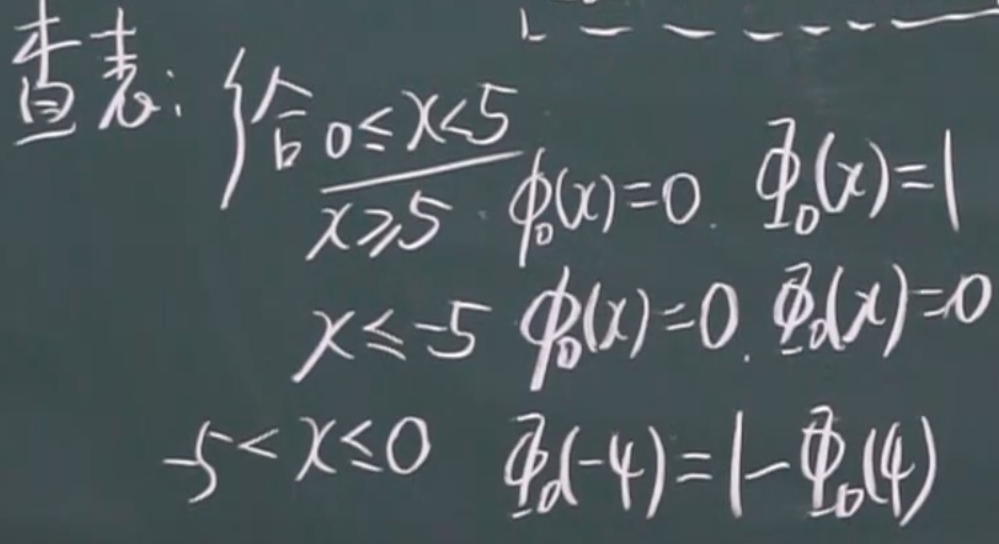 查表: { 给 0≤x<5
x≥5. φ₀(x)=0. Φ₀(x)=1
x≤-5 φ₀(x)=0. Φ₀(x)=0
-5<x≤0 Φ₀(-4)=1-Φ₀(4)